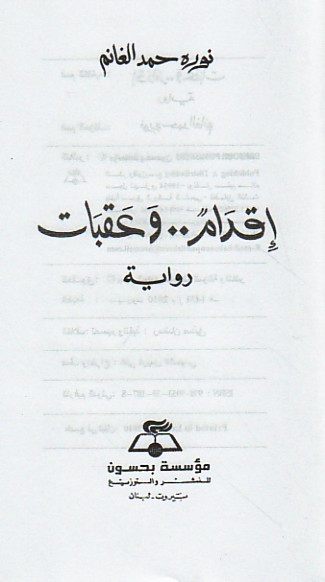 نوره حمد الغانم
إقدامٌ .. وعقبات
رواية
مؤسسة بحسون
للنشر والتوزيع
بيروت - لبنان